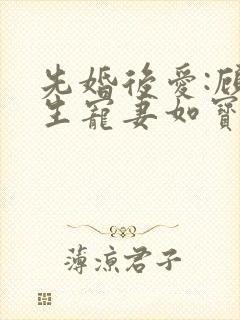 先婚後愛:顧
生寵妻如寶
薄涼君子